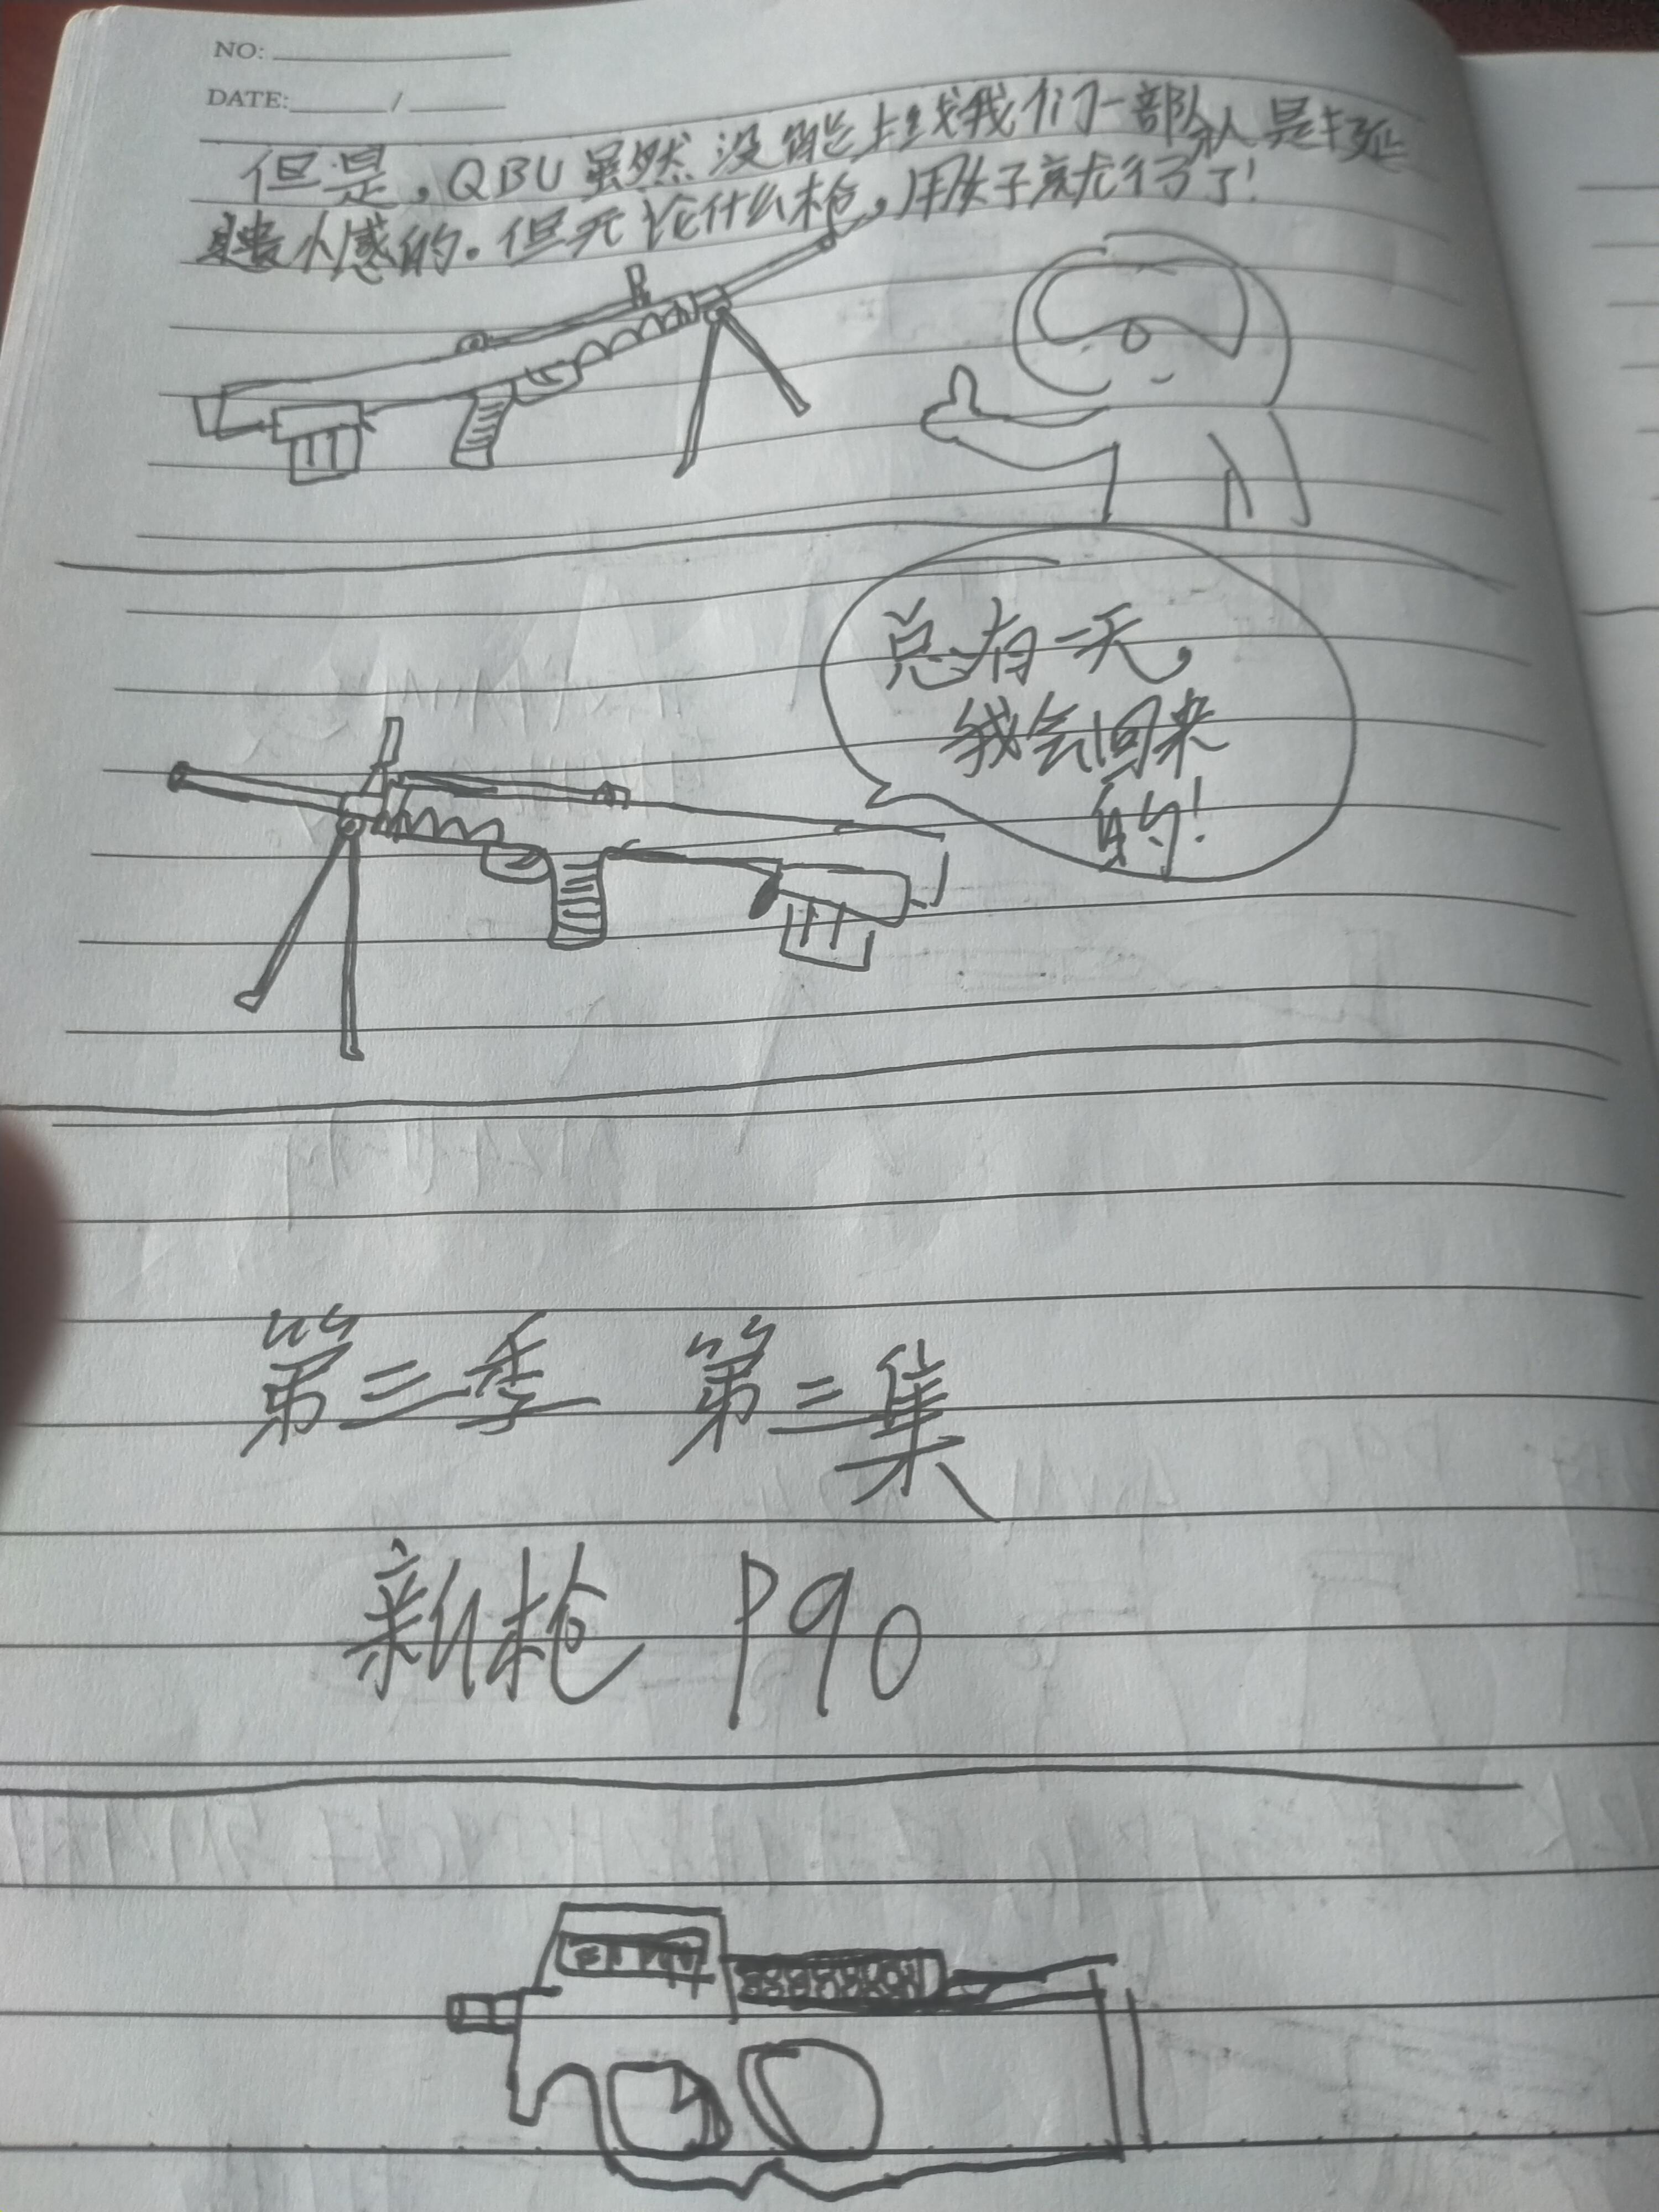 NO:
DATE: /
但是，QBU虽然没能上线我们一部队是挺
遗憾的。但无论什么枪，用好就行了！
总有一天，
我会回来
的！
第三季 第三集
新枪 P90